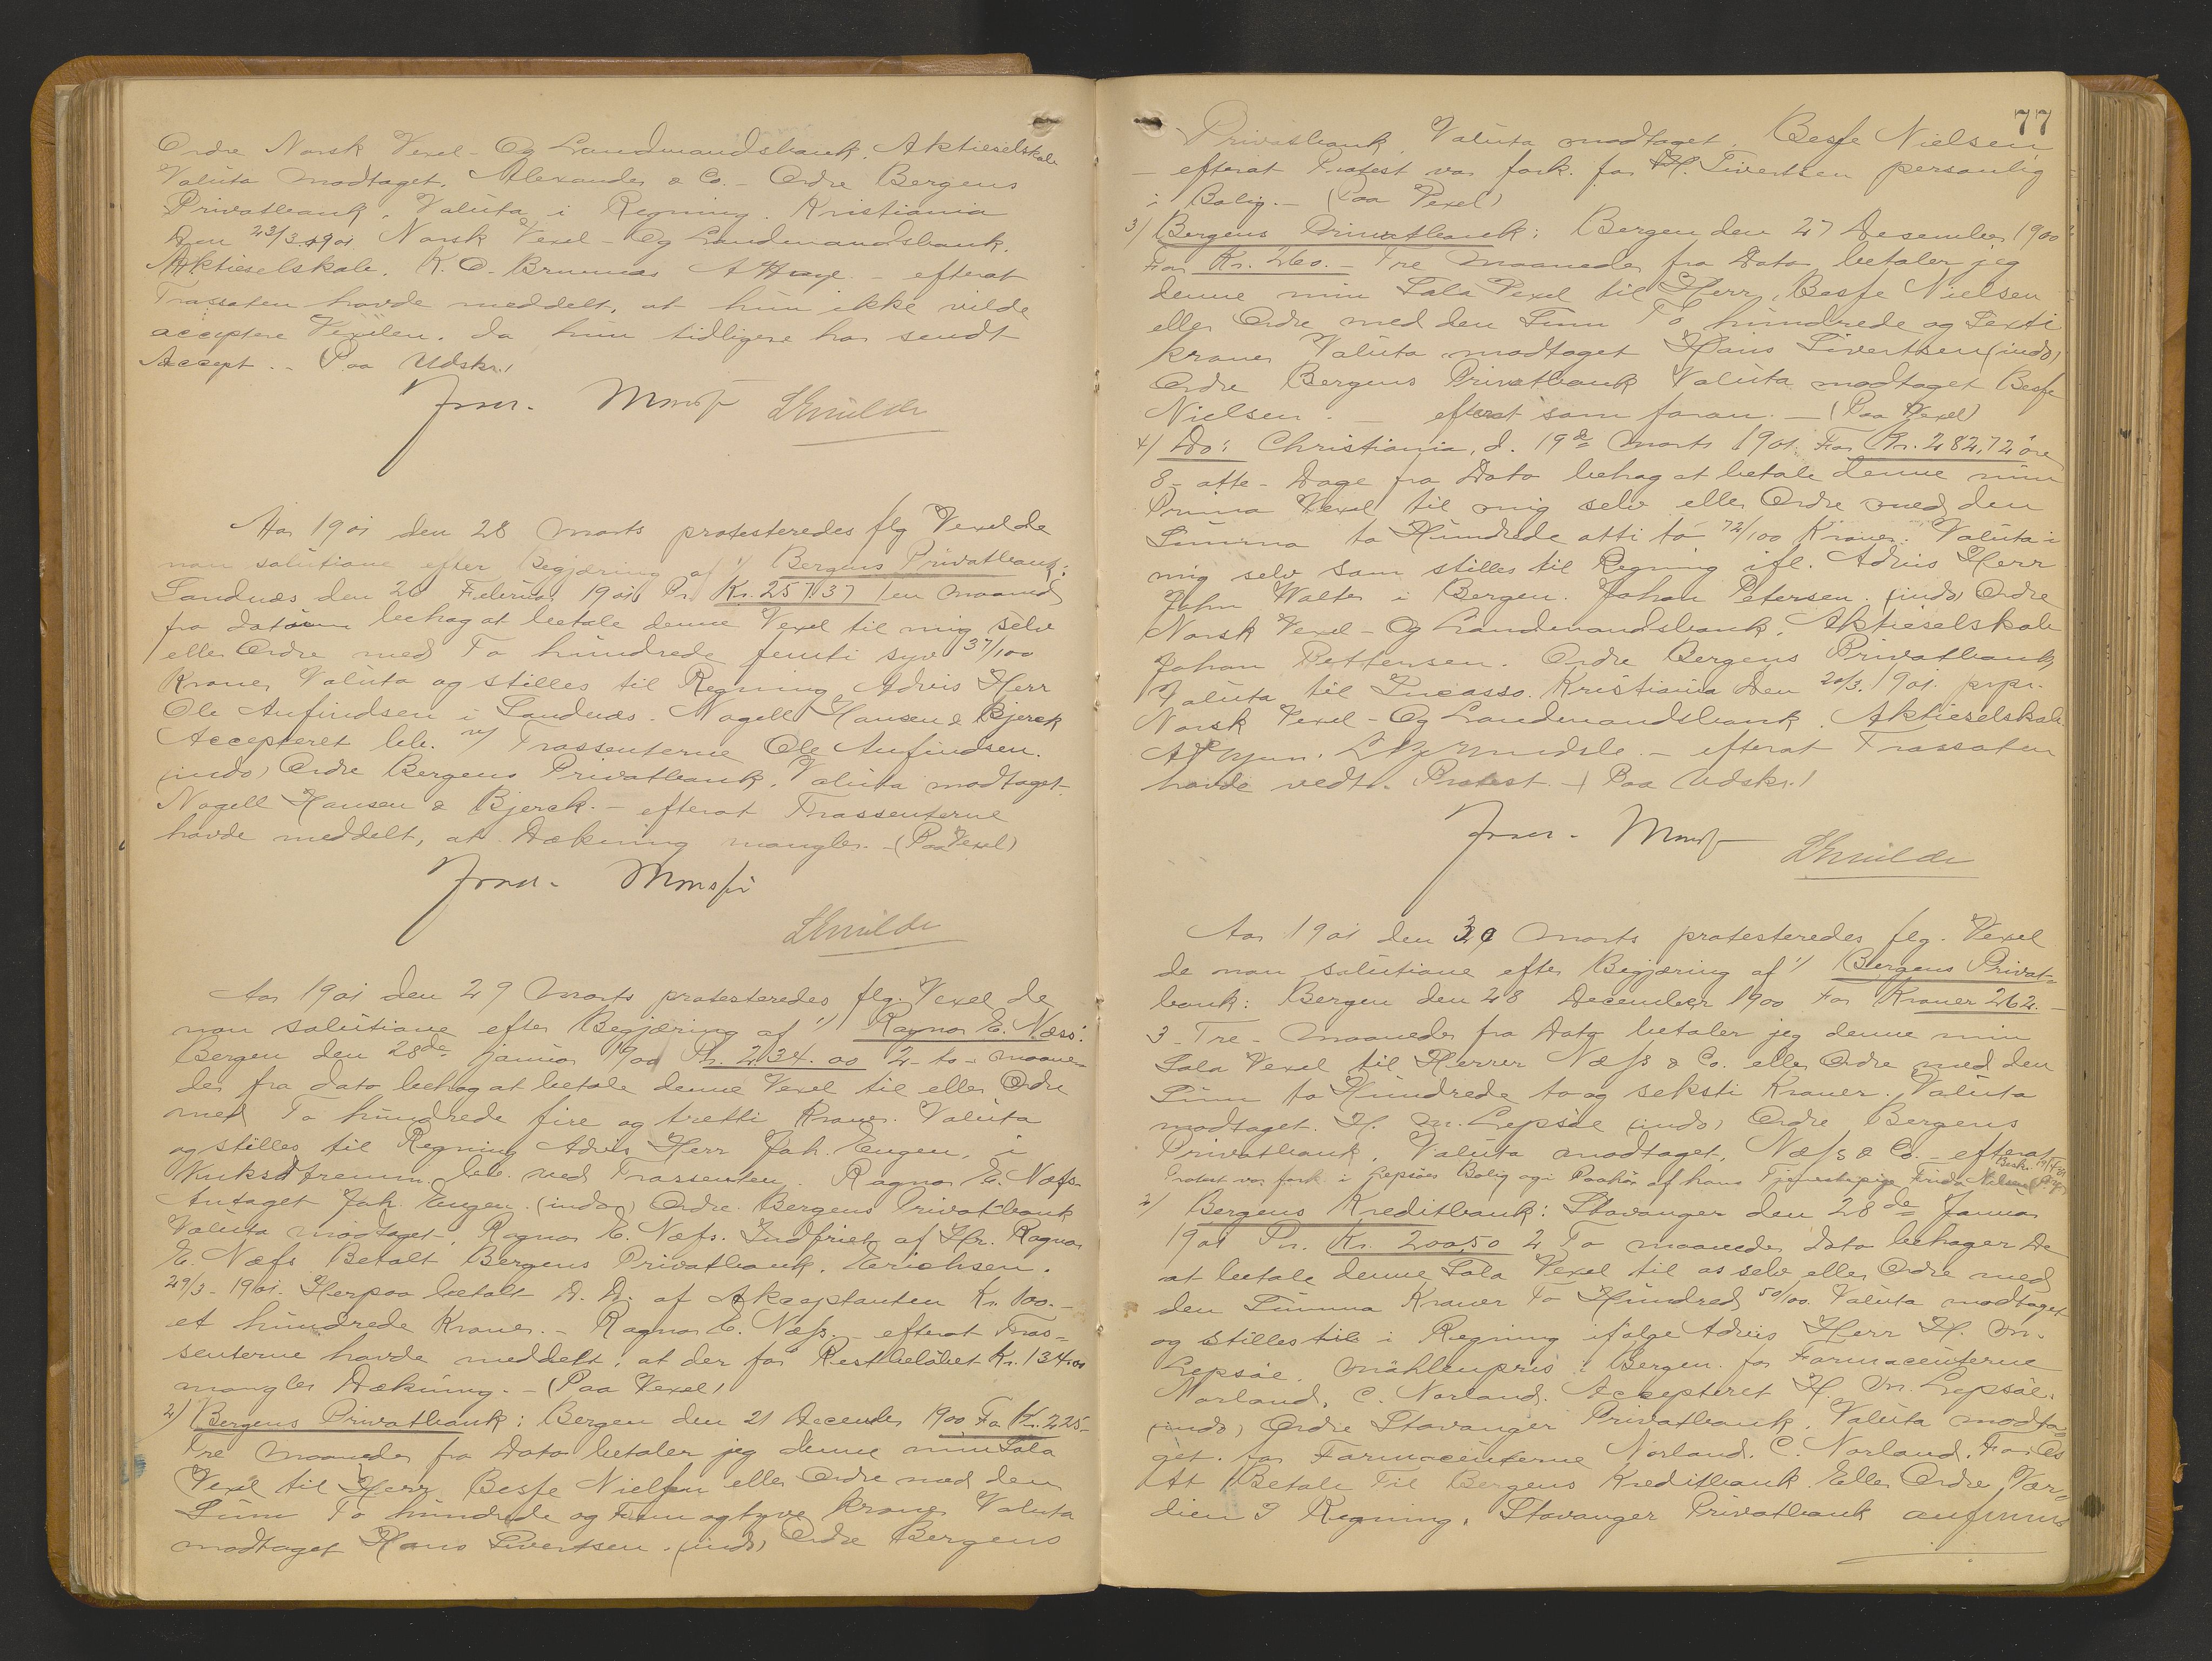 Ordre Norsk Vexel- Og Landmandsbank. Aktieselskab
Valuta modtaget. Alexander & Co. - Ordre Bergens
Privatbank. Valuta i Regning. Kristiania
den 23/3 1901 Norsk Vexel- Og Landmandsbank.
Aktieselskab. K. O. - efterat
Trassaten havde meddelt, at hun ikke vilde
acceptere Vexelen, da hun tidligere har sendt
Accept. - Paa Udskr.)
Aar 1901 den 28 Marts protesteredes flg Vexel de
non solutione efter Begjæring af 1) Bergens Privatbank:
Sandnæs den 20 Februar 1901 Pr. Kr. 257,37 1 en maaned
fra dato behag at betale denne Vexel til mig selv
eller Ordre med To hundrede femti syv 37/100
Kroner Valuta og stilles til Regning Advis Herr
Ole Aufindsen i Sandnæs. Nagell Hansen & Bjerck
Accepteret bet. v/ Trassenterne Ole Aufindsen.
(indo) Ordre Bergens Privatbank. Valuta modtaget.
Nagell Hansen & Bjerck. - efterat Trassenterne
havde meddelt, at Dækning mangler. - (Paa Vexel)
Aar 1901 den 29 Marts protesteredes flg. Vexel de
non solutione efter Begjæring af 1) Ragnar E. Næss:
Bergen den 28de januar 1900 Pr. 234.00 2 - to - maane-
der fra dato behag at betale denne Vexel til eller Ordre
med To hundrede fire og tretti Kroner. Valuta
og stilles til Regning Advis Herr Joh. Eugen, i
bet. ved Trassenten. Ragnar E. Næss
Antaget Joh. Eugen. (indo) Ordre Bergens Privatbank
Valuta modtaget. Ragnar E. Næfs. Indfriet af Hr. Ragnar
E. Næfs Betalt Bergens Privatbank. Erichsen.
29/3 - 1901. Herpaa betalt D. D. af Akceptanten Kr. 100.-
et hundrede Kroner. - Ragnar E. Næss. - efterat Tras-
senterne havde meddelt, at der for Restbeløbet Kr. 134,00
mangler Dækning. - (Paa Vexel)
2) Bergens Privatbank: Bergen den 21 Decenber 1900 For Kr. 225-
Tre maaneder fra Dato betaler jeg denne min Sola
Vexel til Herr Besfe Nielsen eller Ordre med den
Sum To hundrede og Fem og tyve kroner Valuta
modtaget Hans Sivertsen. (indo) Ordre Bergens
77
Privatbank. Valuta modtaget. Besfe Nielsen
- efterat Protest var fork. for H. Sivertsen personlig
i Bolig. - (Paa Vexel)
3) Bergens Privatbank: Bergen den 27 Desember 1900
For Kr. 260. - Tre Maaneder fra Dato betaler jeg
denne min Sola Vexel til Herr. Besfe Nielsen
eller Ordre med den Sum To hundrede og Sexti
kroner Valuta modtaget Hans Sivertsen (indo)
Ordre Bergens Privatbank Valuta modtaget Besfe
Nielsen. - efterat som foran. - (Paa Vexel)
4) Do: Christiania, d. 19de Marts 1901. For Kr. 282,72 öre
8 - otte - Dage fra Dato behag at betale denne min
Prima Vexel til mig selv eller Ordre med den
Summa to Hundrede otti to 72/100 Kroner. Valuta i
mig selv som stilles til Regning ifl. Advis Herr
John Walter i Bergen. Johan Petersen. (indo) Ordre
Norsk Vexel- Og Landmandsbank. Aktieselskab
Johan Pettersen. Ordre Bergens Privatbank
Valuta til Incasso. Kristiania den 20/3. 1901. prpr.
Norsk Vexel- Og Landmandsbank. Aktieselskab
- efterat Trassaten
havde vedt. Protest. - (Paa Udskr.)
Aar 1901 den 30 Marts protesteredes flg. Vexel
de non solutione efter Begjæring af 1) Bergens Privat-
bank: Bergen den 28 December 1900 For Kroner 262.-
3 - Tre - Maaneder fra Dato betaler jeg denne min
Sola Vexel til Herrer Næss & Co. eller Ordre med den
Sum to Hundrede to og seksti Kroner. Valuta
modtaget. H. M. Lepsöe (indo) Ordre Bergens
Privatbank. Valuta modtaget. Næss & Co. - efterat
Protest var fork. i Lepsöes Bolig og i Paahör af hans Tjenestepige Frida Nilsen
2) Bergens Kreditbank: Stavanger den 28de Januar
1901 Pr. Kr. 200,50 2 To maaneder dato behager De
at betale denne Sola Vexel til os selv eller Ordre med
den Summa Kroner To Hundred 50/100. Valuta modtaget
og stilles til i Regning ifölge Advis Herr H. M.
Lepsöe. Möhlenpris i Bergen. for Farmaceuterne
Norland. C. Norland. Accepteret H. M. Lepsöe.
(indo) Ordre Stavanger Privatbank. Valuta modta-
get. for Farmaceuterne Norland. C. Norland. For Os
At Betale Til Bergens Kreditbank Eller Ordre Vær-
dien I Regning. Stavanger Privatbank